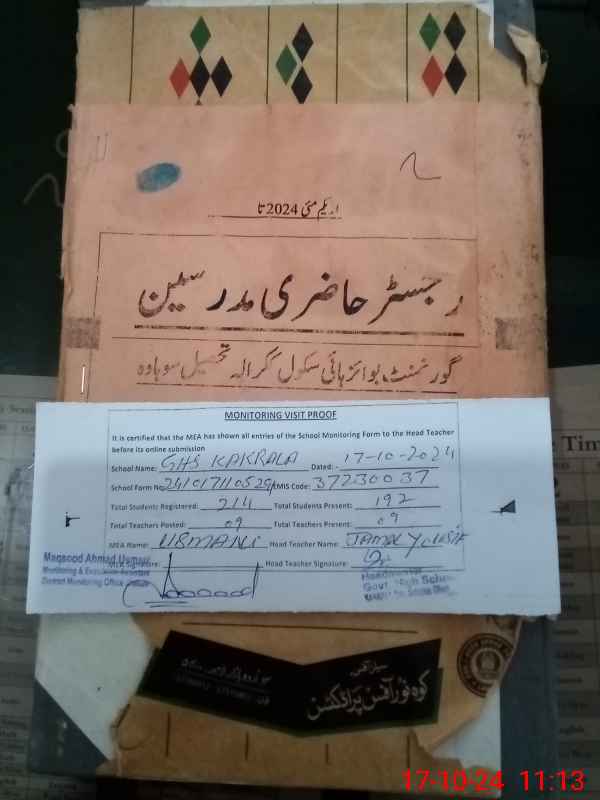 از یکم مئی 2024 تا
رجسٹر حاضری مدرسین
گورنمنٹ بوائز ہائی سکول ککرالہ تحصیل سوہاوہ
MONITORING VISIT PROOF
It is certified that the MEA has shown all entries of the School Monitoring Form to the Head Teacher
before its online submission
School Name: GHS KAKRALA Dated: 17-10-2024
School Form No. EMIS Code: 37230037
Total Students Registered: 214 Total Students Present: 192
Total Teachers Posted: 09 Total Teachers Present: 09
MEA Name: USMANI Head Teacher Name: JAMAL YOUSIF
MEA Signature: Head Teacher Signature:
Maqsood Ahmad Usmani
Monitoring & Evaluation Assistant
District Monitoring Office
Headmaster
Govt. High School
کوہ نور آفس پراڈکشن
17-10-24 11:13